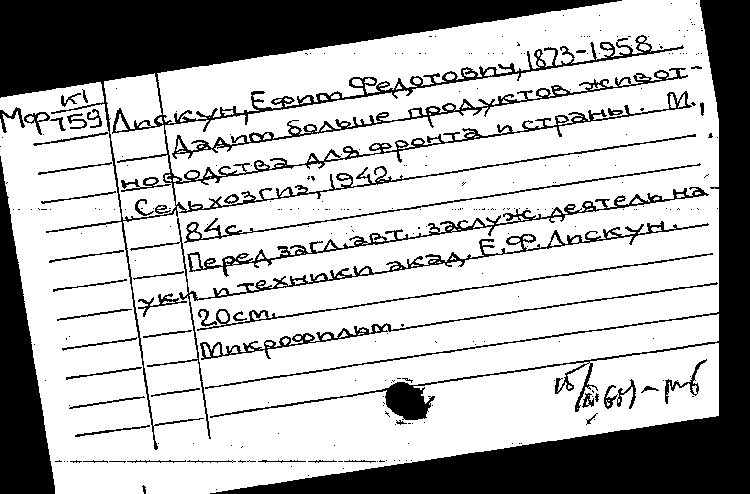 Мфк1/759
Лискун, Ефим Федотович, 1873-1958.
Дадим больше продуктов живот-
новодства для фронта и страны. М.,
"Сельхозгиз", 1942.
84с.
Перед загл. авт.: заслуж. деятель на-
уки и техники акад. Е.Ф. Лискун.
20см.
Микрофильм.